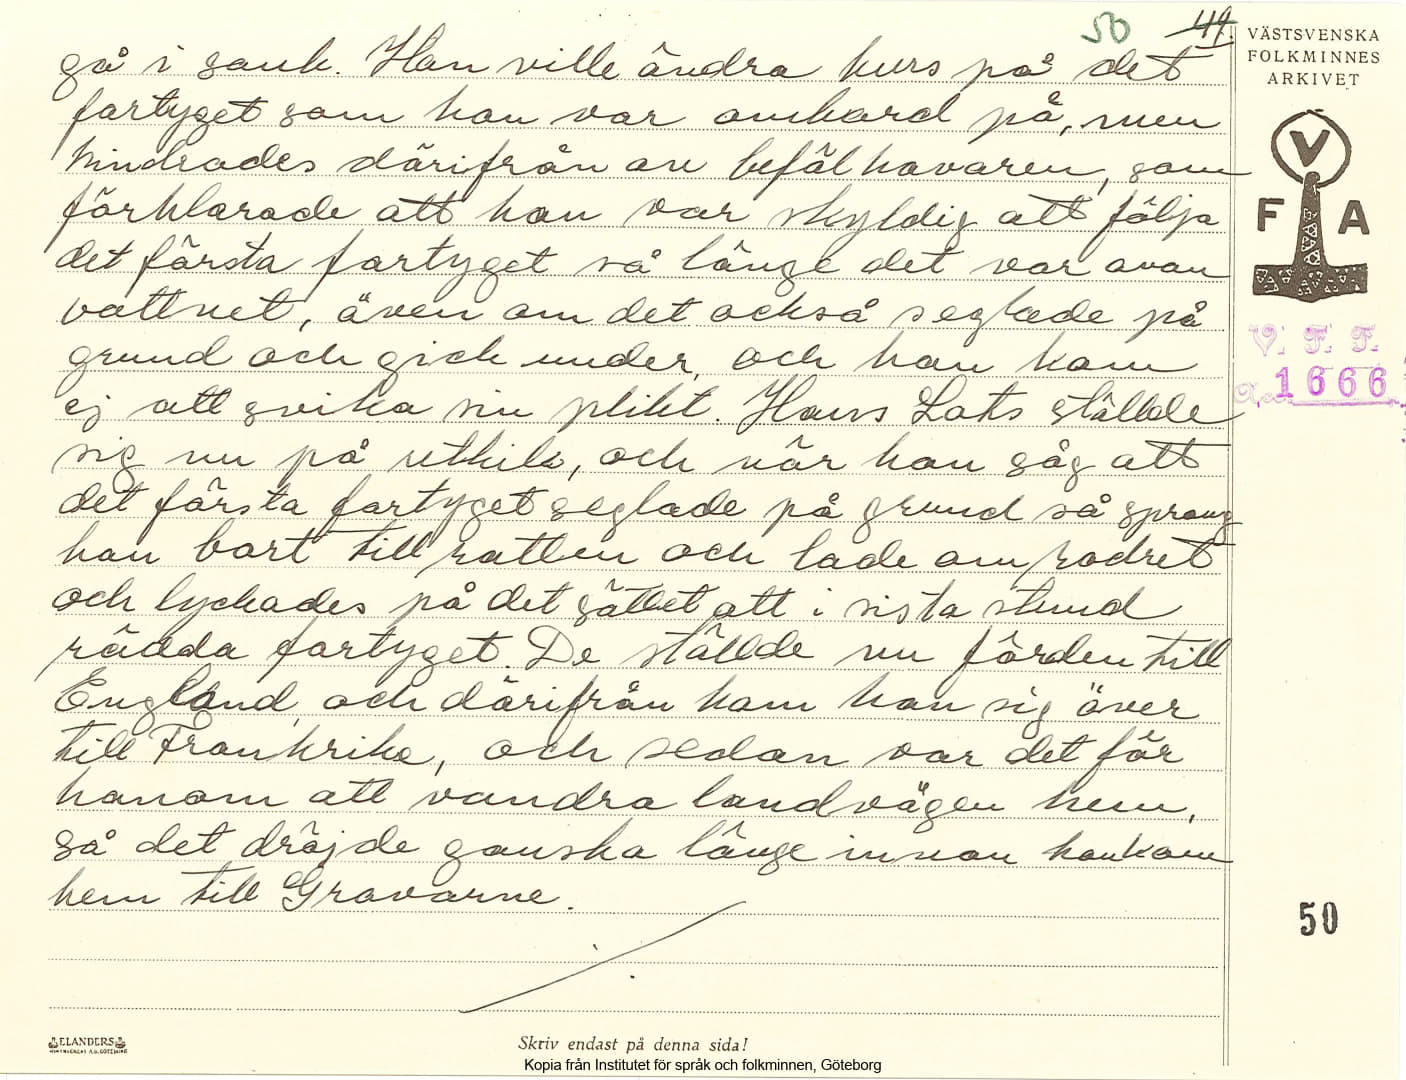 50 49.
VÄSTSVENSKA
FOLKMINNES
ARKIVET
V
F A
V. F. F.
1666
gå i sank. Han ville ändra kurs på det
fartyget som han var ombord på, men
hindrades därifrån av befälhavaren, som
förklarade att han var skyldig att följa
det första fartyget så länge det var ovan
vattnet, även om det också seglade på
grund och gick under, och han kom
ej att svika sin plikt. Hans Lots ställde
sig nu på utkik, och när han såg att
det första fartyget seglade på grund så sprang
han bort till ratten och lade om rodret
och lyckades på det sättet att i sista stund
rädda fartyget. De ställde nu färden till
England och därifrån kom han sig över
till Frankrike, och sedan var det för
honom att vandra landvägen hem,
så det dröjde ganska länge innan han kom
hem till Gravarne.
50
ELANDERS
Skriv endast på denna sida!
Kopia från Institutet för språk och folkminnen, Göteborg